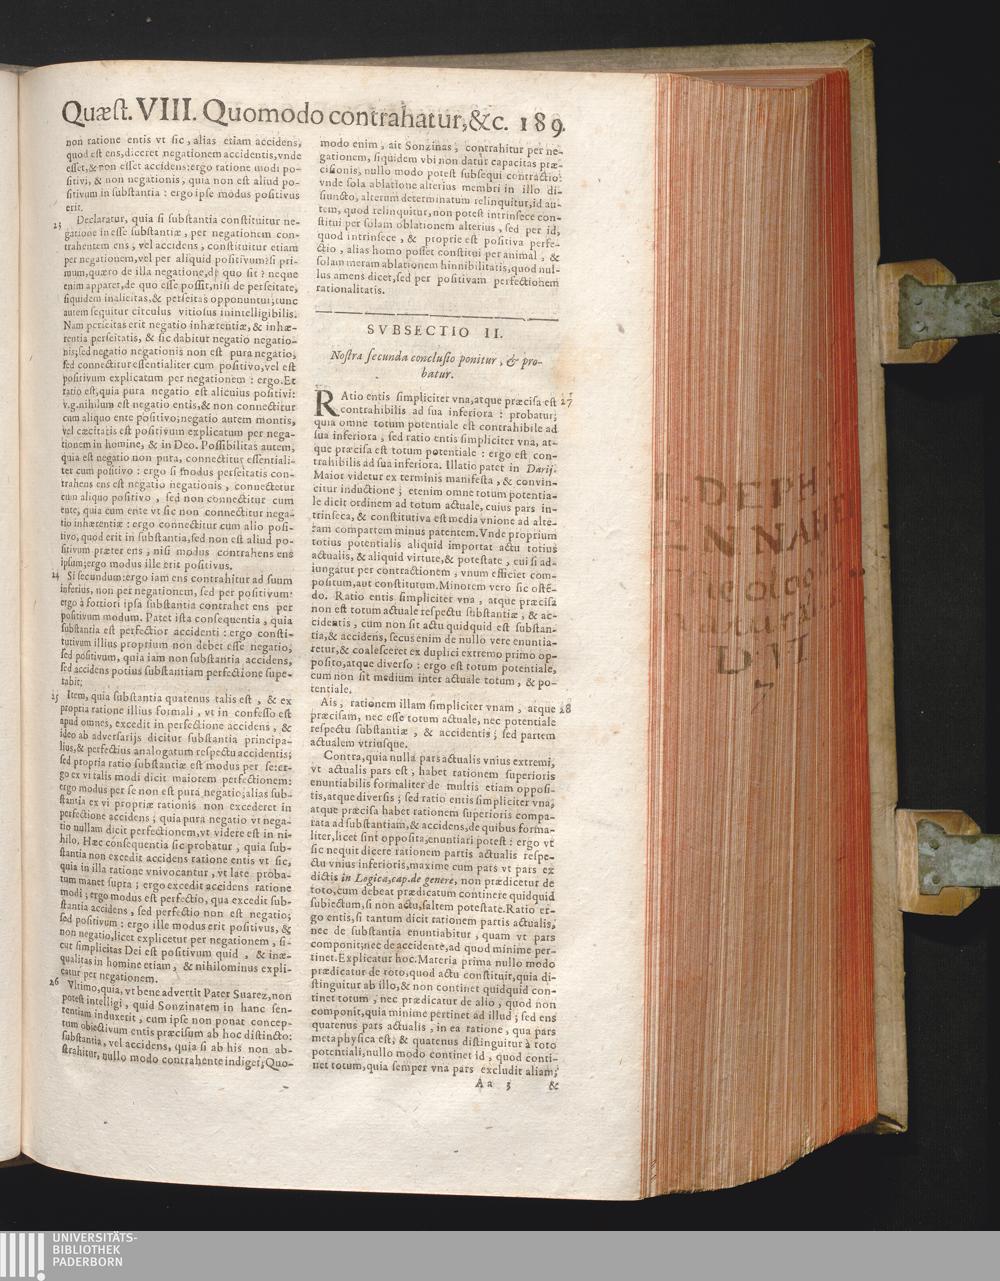 Quæſt. VIII. Quomodo contrahatur, &c. 189.
non ratione entis vt ſic, alias etiam accidens,
quod eſt ens, diceret negationem accidentis, vnde
eſſet, & non eſſet accidens: ergo ratione modi po-
ſitivi, & non negationis, quia non eſt aliud po-
ſitivum in ſubſtantia : ergo ipſe modus poſitivus
erit.
23 Declaratur, quia ſi ſubſtantia conſtituitur ne-
gatione in eſſe ſubſtantiæ, per negationem con-
trahentem ens, vel accidens, conſtituitur etiam
per negationem, vel per aliquid poſitivum? ſi pri-
mum, quæro de illa negatione, de quo ſit ? neque
enim apparet, de quo eſſe poſſit, niſi de perſeitate,
ſiquidem inalietas, & perſeitas opponuntur; tunc
autem ſequitur circulus vitioſus inintelligibilis.
Nam perſeitas erit negatio inhærentiæ, & inhæ-
rentia perſeitatis, & ſic dabitur negatio negatio-
nis; ſed negatio negationis non eſt pura negatio,
ſed connectitur eſſentialiter cum poſitivo, vel eſt
poſitivum explicatum per negationem : ergo. Et
ratio eſt, quia pura negatio eſt alicuius poſitivi:
v.g. nihilum eſt negatio entis, & non connectitur
cum aliquo ente poſitivo; negatio autem montis,
vel cæcitatis eſt poſitivum explicatum per nega-
tionem in homine, & in Deo. Poſſibilitas autem,
quia eſt negatio non pura, connectitur eſſentiali-
ter cum poſitivo : ergo ſi modus perſeitatis con-
trahens ens eſt negatio negationis, connectetur
cum aliquo poſitivo, ſed non connectitur cum
ente, quia cum ente vt ſic non connectitur nega-
tio inhærentiæ : ergo connectitur cum alio poſi-
tivo, quod erit in ſubſtantia, ſed non eſt aliud po-
ſitivum præter ens, niſi modus contrahens ens
ipſum; ergo modus ille erit poſitivus.
24 Si ſecundum: ergo iam ens contrahitur ad ſuum
inferius, non per negationem, ſed per poſitivum:
ergo à fortiori ipſa ſubſtantia contrahet ens per
poſitivum modum. Patet iſta conſequentia, quia
ſubſtantia eſt perfectior accidenti : ergo conſti-
tutivum illius proprium non debet eſſe negatio,
ſed poſitivum, quia iam non ſubſtantia accidens,
ſed accidens potius ſubſtantiam perfectione ſupe-
rabit.
25 Item, quia ſubſtantia quatenus talis eſt, & ex
propria ratione illius formali, vt in confeſſo eſt
apud omnes, excedit in perfectione accidens, &
ideo ab adverſarijs dicitur ſubſtantia principa-
lius, & perfectius analogatum reſpectu accidentis;
ſed propria ratio ſubſtantiæ eſt modus per ſe: er-
go ex vi talis modi dicit maiorem perfectionem:
ergo modus per ſe non eſt pura negatio; alias ſub-
ſtantia ex vi propriæ rationis non excederet in
perfectione accidens; quia pura negatio vt nega-
tio nullam dicit perfectionem, vt videre eſt in ni-
hilo. Hæc conſequentia ſic probatur, quia ſub-
ſtantia non excedit accidens ratione entis vt ſic,
quia in illa ratione vnivocantur, vt late proba-
tum manet ſupra ; ergo excedit accidens ratione
modi ; ergo modus eſt perfectio, qua excedit ſub-
ſtantia accidens, ſed perfectio non eſt negatio;
ſed poſitivum : ergo ille modus erit poſitivus, &
non negatio, licet explicetur per negationem, ſi-
cut ſimplicitas Dei eſt poſitivum quid, & inæ-
qualitas in homine etiam, & nihilominus expli-
catur per negationem.
26 Vltimo, quia, vt bene advertit Pater Suarez, non
poteſt intelligi, quid Sonzinatem in hanc ſen-
tentiam induxerit, cum ipſe non ponat concep-
tum obiectivum entis præciſum ab hoc diſtincto:
ſubſtantia, vel accidens, quia ſi ab his non ab-
ſtrahitur, nullo modo contrahente indiget; Quo-
modo enim, ait Sonzinas, contrahitur per ne-
gationem, ſiquidem vbi non datur capacitas præ-
ciſionis, nullo modo poteſt ſubſequi contractio:
vnde ſola ablatione alterius membri in illo di-
ſiuncto, alterum determinatum relinquitur, id au-
tem, quod relinquitur, non poteſt intrinſece con-
ſtitui per ſolam oblationem alterius, ſed per id,
quod intrinſece, & proprie eſt poſitiva perfe-
ctio, alias homo poſſet conſtitui per animal, &
ſolam meram ablationem hinnibilitatis, quod nul-
lus amens dicet, ſed per poſitivam perfectionem
rationalitatis.
SVBSECTIO II.
Noſtra ſecunda concluſio ponitur, & pro-
batur.
RAtio entis ſimpliciter vna, atque præciſa eſt 27
contrahibilis ad ſua inferiora : probatur;
quia omne totum potentiale eſt contrahibile ad
ſua inferiora, ſed ratio entis ſimpliciter vna, at-
que præciſa eſt totum potentiale : ergo eſt con-
trahibilis ad ſua inferiora. Illatio patet in Darij.
Maior videtur ex terminis manifeſta, & convin-
citur inductione ; etenim omne totum potentia-
le dicit ordinem ad totum actuale, cuius pars in-
trinſeca, & conſtitutiva eſt media vnione ad alte-
ram compartem minus patentem. Vnde proprium
totius potentialis aliquid importat actu totius
actualis, & aliquid virtute, & poteſtate, cui ſi ad-
iungatur per contractionem, vnum efficiet com-
poſitum, aut conſtitutum. Minorem vero ſic oſtẽ-
do. Ratio entis ſimpliciter vna, atque præciſa
non eſt totum actuale reſpectu ſubſtantiæ, & ac-
cidentis, cum non ſit actu quidquid eſt ſubſtan-
tia, & accidens, ſecus enim de nullo vere enuntia-
retur, & coaleſceret ex duplici extremo primo op-
poſito, atque diverſo : ergo eſt totum potentiale,
cum non ſit medium inter actuale totum, & po-
tentiale.
Ais, rationem illam ſimpliciter vnam, atque 28
præciſam, nec eſſe totum actuale, nec potentiale
reſpectu ſubſtantiæ, & accidentis ; ſed partem
actualem vtriuſque.
Contra, quia nulla pars actualis vnius extremi,
vt actualis pars eſt, habet rationem ſuperioris
enuntiabilis formaliter de multis etiam oppoſi-
tis, atque diverſis ; ſed ratio entis ſimpliciter vna,
atque præciſa habet rationem ſuperioris compa-
rata ad ſubſtantiam, & accidens, de quibus forma-
liter, licet ſint oppoſita, enuntiari poteſt : ergo vt
ſic nequit dicere rationem partis actualis reſpe-
ctu vnius inferioris, maxime cum pars vt pars ex
dictis in Logica, cap. de genere, non prædicetur de
toto, cum debeat prædicatum continere quidquid
ſubiectum, ſi non actu, ſaltem poteſtate. Ratio er-
go entis, ſi tantum dicit rationem partis actualis,
nec de ſubſtantia enuntiabitur, quam vt pars
componit; nec de accidente, ad quod minime per-
tinet. Explicatur hoc. Materia prima nullo modo
prædicatur de toto, quod actu conſtituit, quia di-
ſtinguitur ab illo, & non continet quidquid con-
tinet totum, nec prædicatur de alio, quod non
componit, quia minime pertinet ad illud ; ſed ens
quatenus pars actualis, in ea ratione, qua pars
metaphyſica eſt, & quatenus diſtinguitur à toto
potentiali, nullo modo continet id, quod conti-
net totum, quia ſemper vna pars excludit aliam;
Aa 3 &
UNIVERSITÄTS-
BIBLIOTHEK
PADERBORN